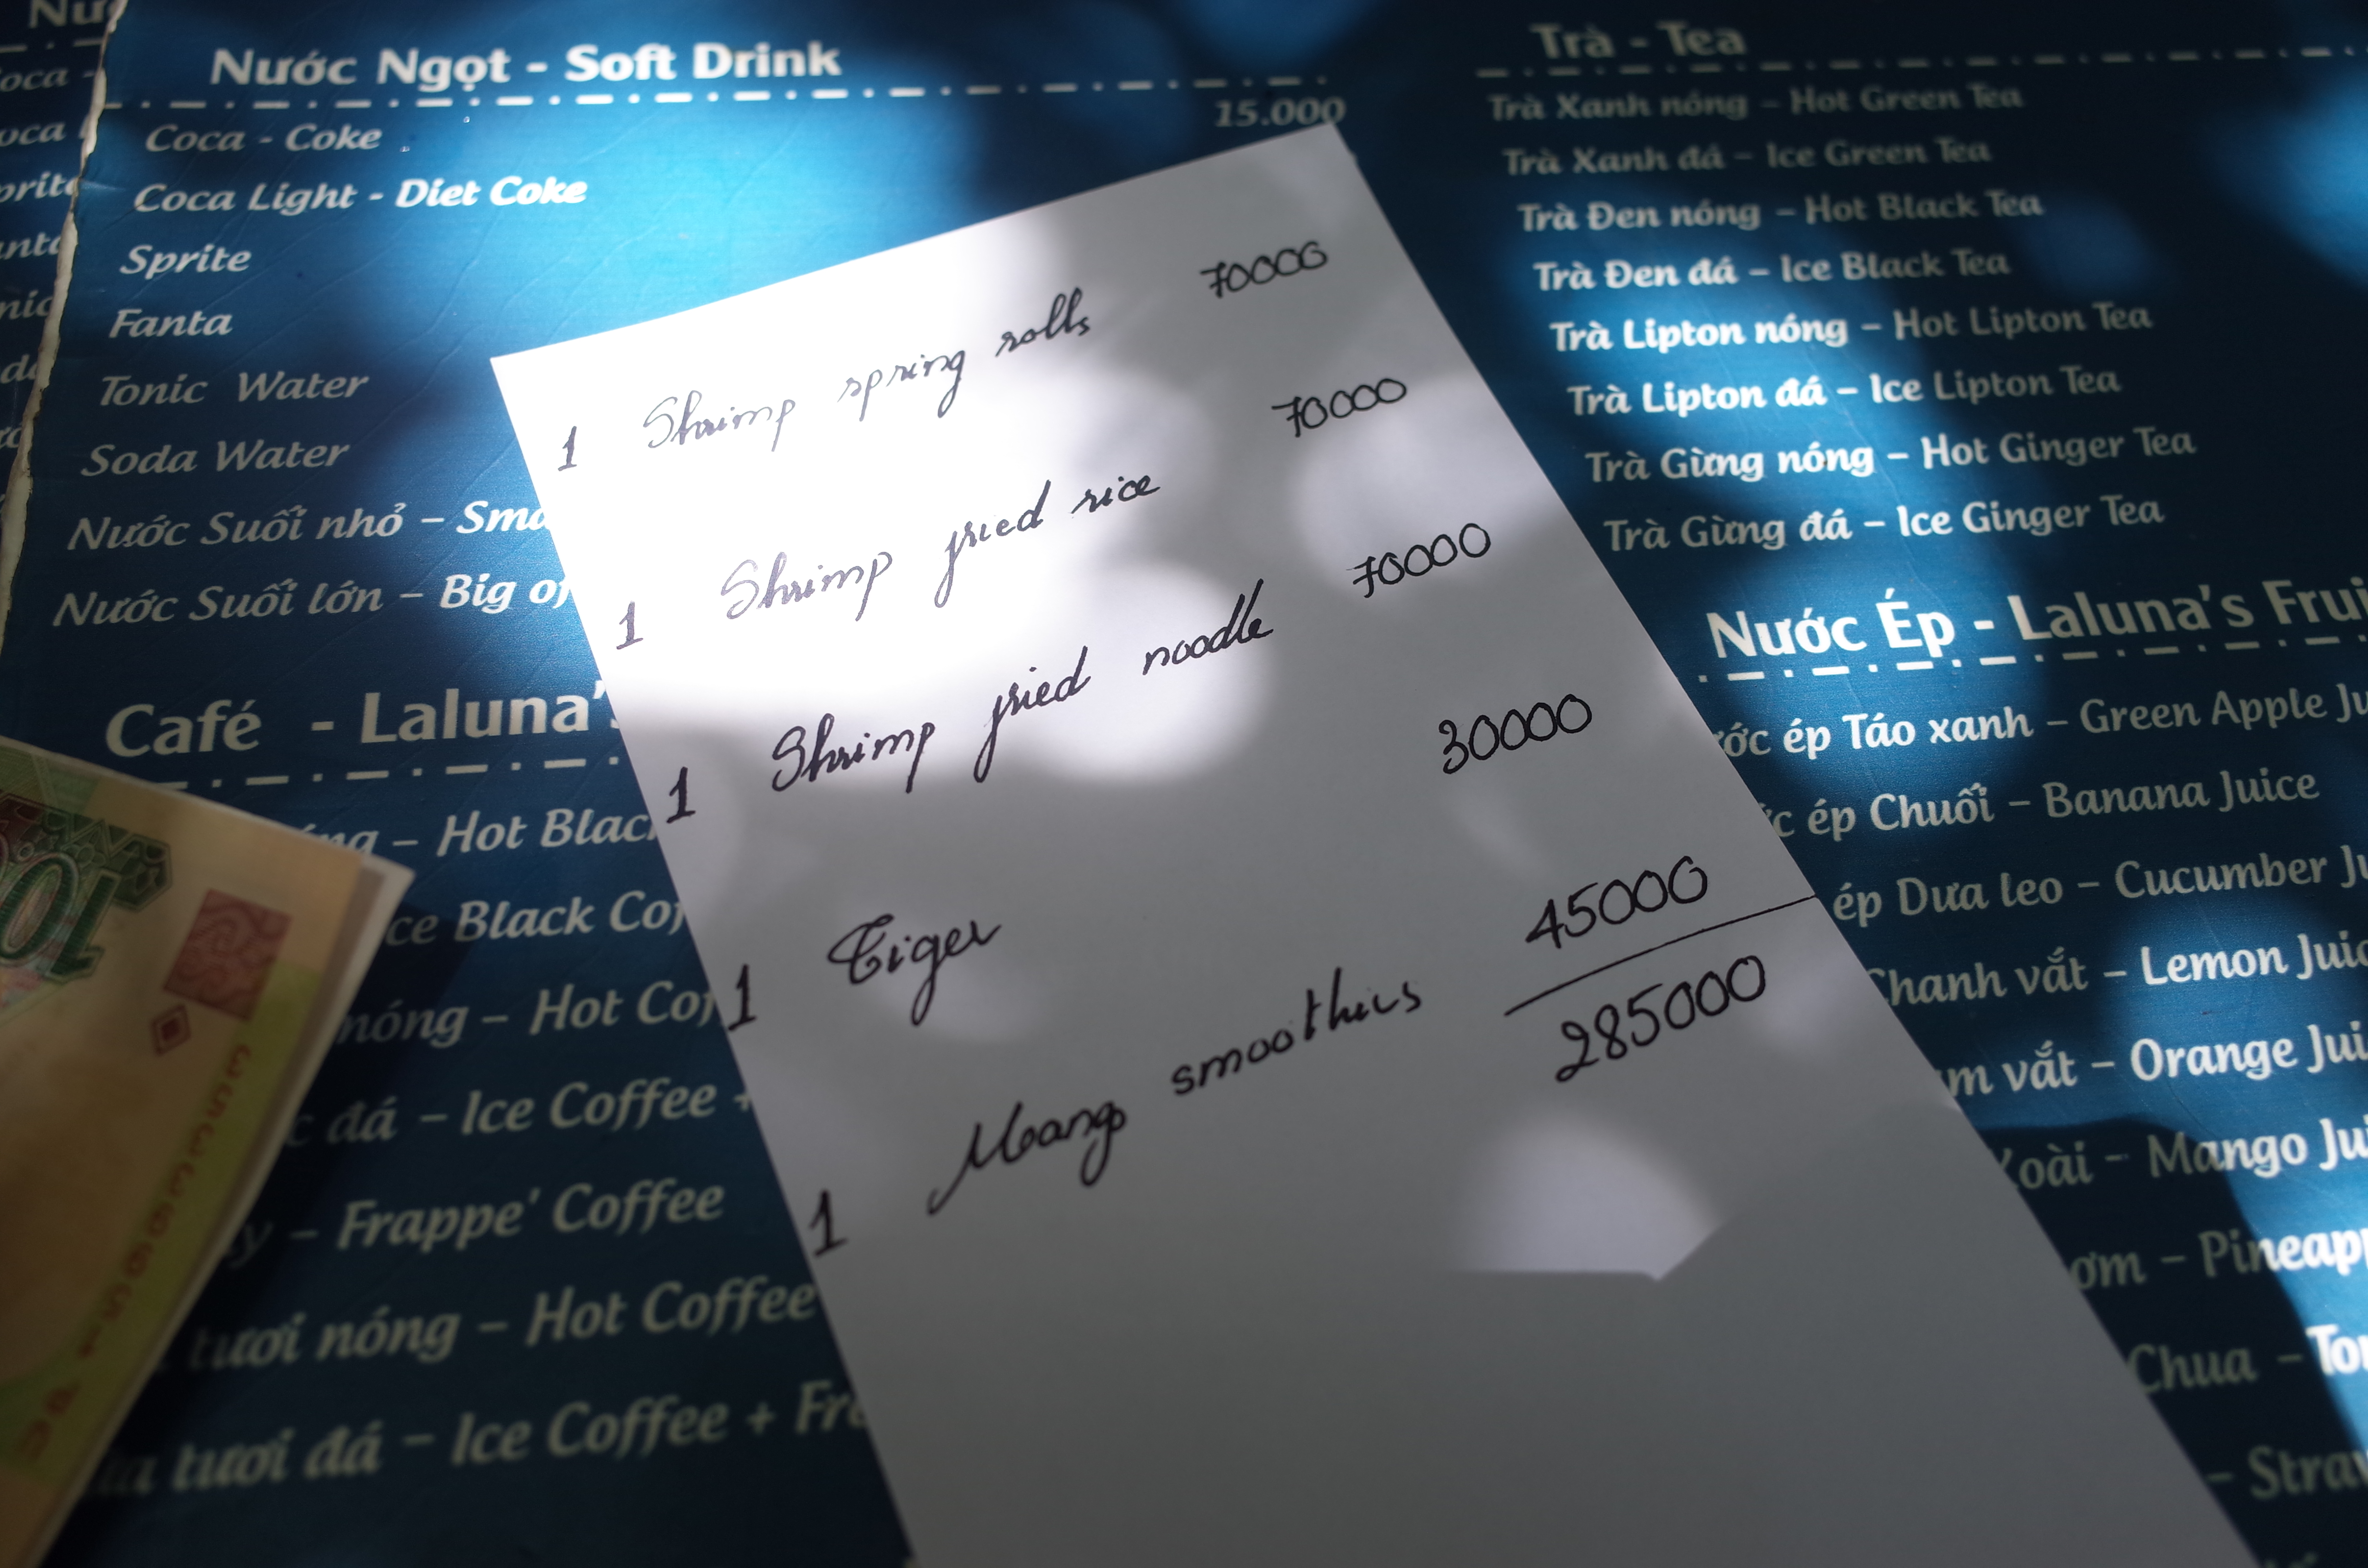 Nước Ngọt - Soft Drink
Coca - Coke
15.000
Coca Light - Diet Coke
Sprite
Fanta
Tonic Water
Soda Water
Nước Suối nhỏ -
Nước Suối lớn - Big
Café - Laluna's
- Hot Black
Ice Black
nóng - Hot
đá - Ice Coffee +
- Frappe' Coffee
tươi nóng - Hot Coffee
tươi đá - Ice Coffee +
1 Shrimp spring rolls 70000
1 Shrimp fried rice 70000
1 Shrimp fried noodle 70000
1 Tiger 30000
1 Mango smoothies 45000
285000
Trà - Tea
Trà Xanh nóng - Hot Green Tea
Trà Xanh đá - Ice Green Tea
Trà Đen nóng - Hot Black Tea
Trà Đen đá - Ice Black Tea
Trà Lipton nóng - Hot Lipton Tea
Trà Lipton đá - Ice Lipton Tea
Trà Gừng nóng - Hot Ginger Tea
Trà Gừng đá - Ice Ginger Tea
Nước Ép - Laluna's
ép Táo xanh - Green Apple
ép Chuối - Banana Juice
ép Dưa leo - Cucumber
Chanh vắt - Lemon
vắt - Orange
Xoài - Mango
- 
Chua -